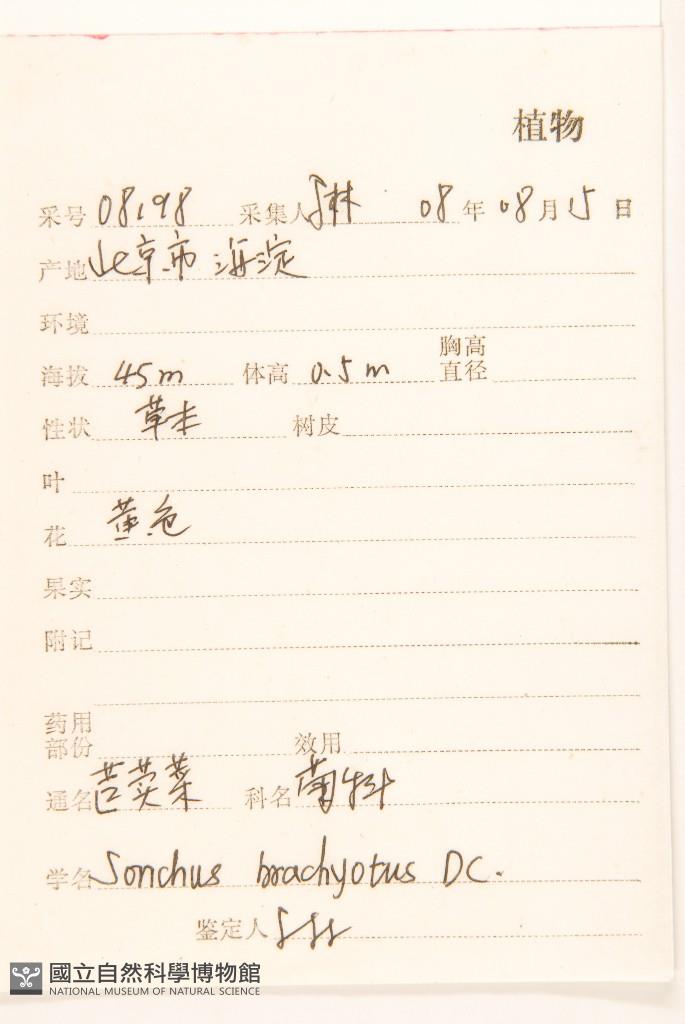 植物
采号 08198 采集人 林 08 年 08 月 15 日
产地 北京市 海淀
环境
海拔 45m 体高 0.5m 胸高直径
性状 草本 树皮
叶
花 黄色
果实
附记
药用部份 效用
通名 苣荬菜 科名 菊科
学名 Sonchus brachyotus DC.
鉴定人
國立自然科學博物館
NATIONAL MUSEUM OF NATURAL SCIENCE